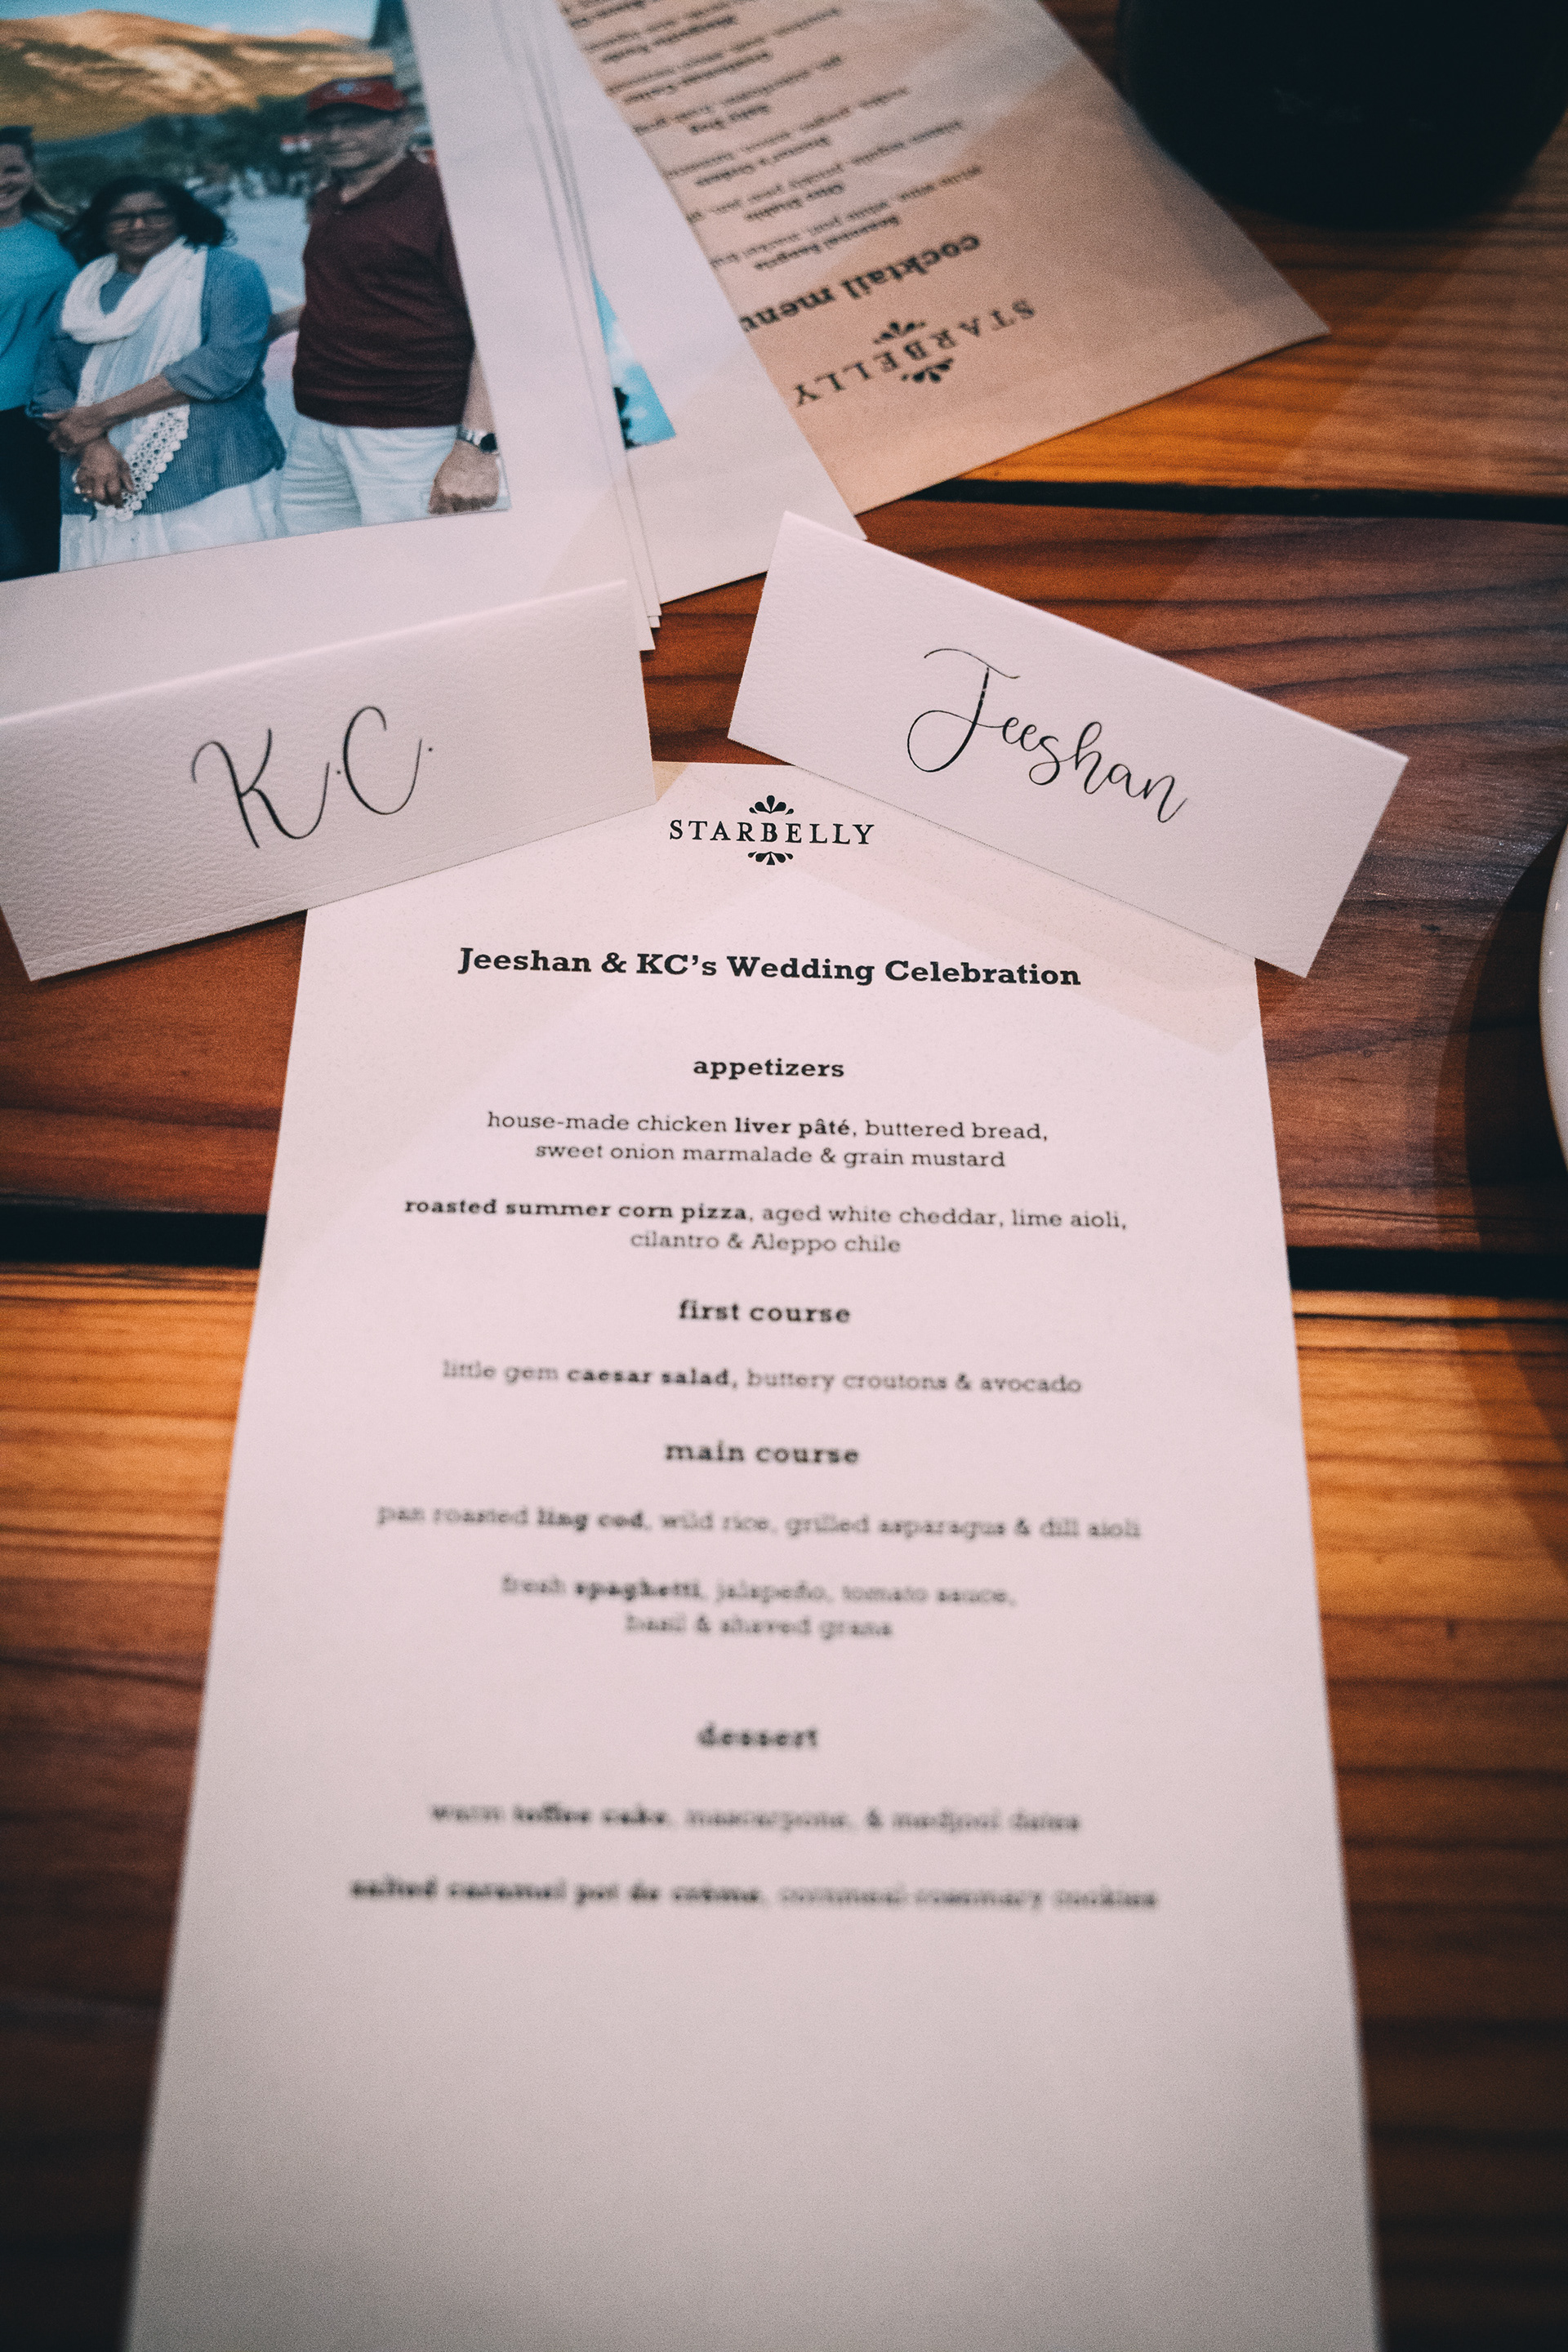 cocktail menu
STARBELLY
K.C.
Jeeshan
STARBELLY
Jeeshan & KC's Wedding Celebration
appetizers
house-made chicken liver pâté, buttered bread,
sweet onion marmalade & grain mustard
roasted summer corn pizza, aged white cheddar, lime aioli,
cilantro & Aleppo chile
first course
little gem caesar salad, buttery croutons & avocado
main course
pan roasted ling cod, wild rice, grilled asparagus & dill aioli
fresh spaghetti, jalapeño, tomato sauce,
basil & shaved grana
dessert
warm toffee cake, mascarpone, & medjool dates
salted caramel pot de crème, cornmeal-rosemary cookies